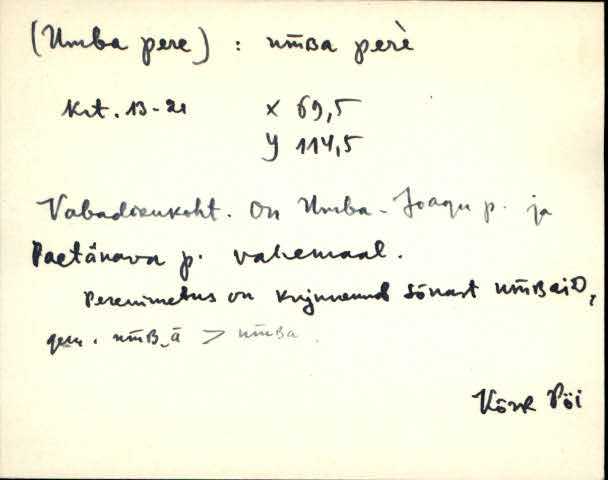 (Umba pere) : um̄ʙa perè
Krt. 13-21 x 69,5
y 114,5
Vabadikukoht. On Umba-Joagu p. ja
Paetänava p. vahemaal.
Perenimetus on kujunenud sõnast um̄ʙaiᴅ,
gen. um̄ʙ_ä > um̄ʙa.
Põi